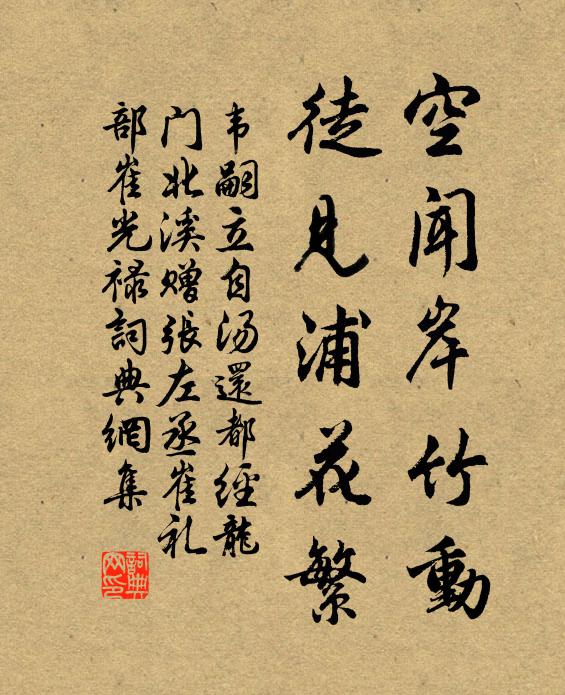 空闻岸竹動
徒見浦花繁
韦嗣立自汤還都經龍
门北溪赠張左丞崔礼
部崔光禄詞典網集
詞典